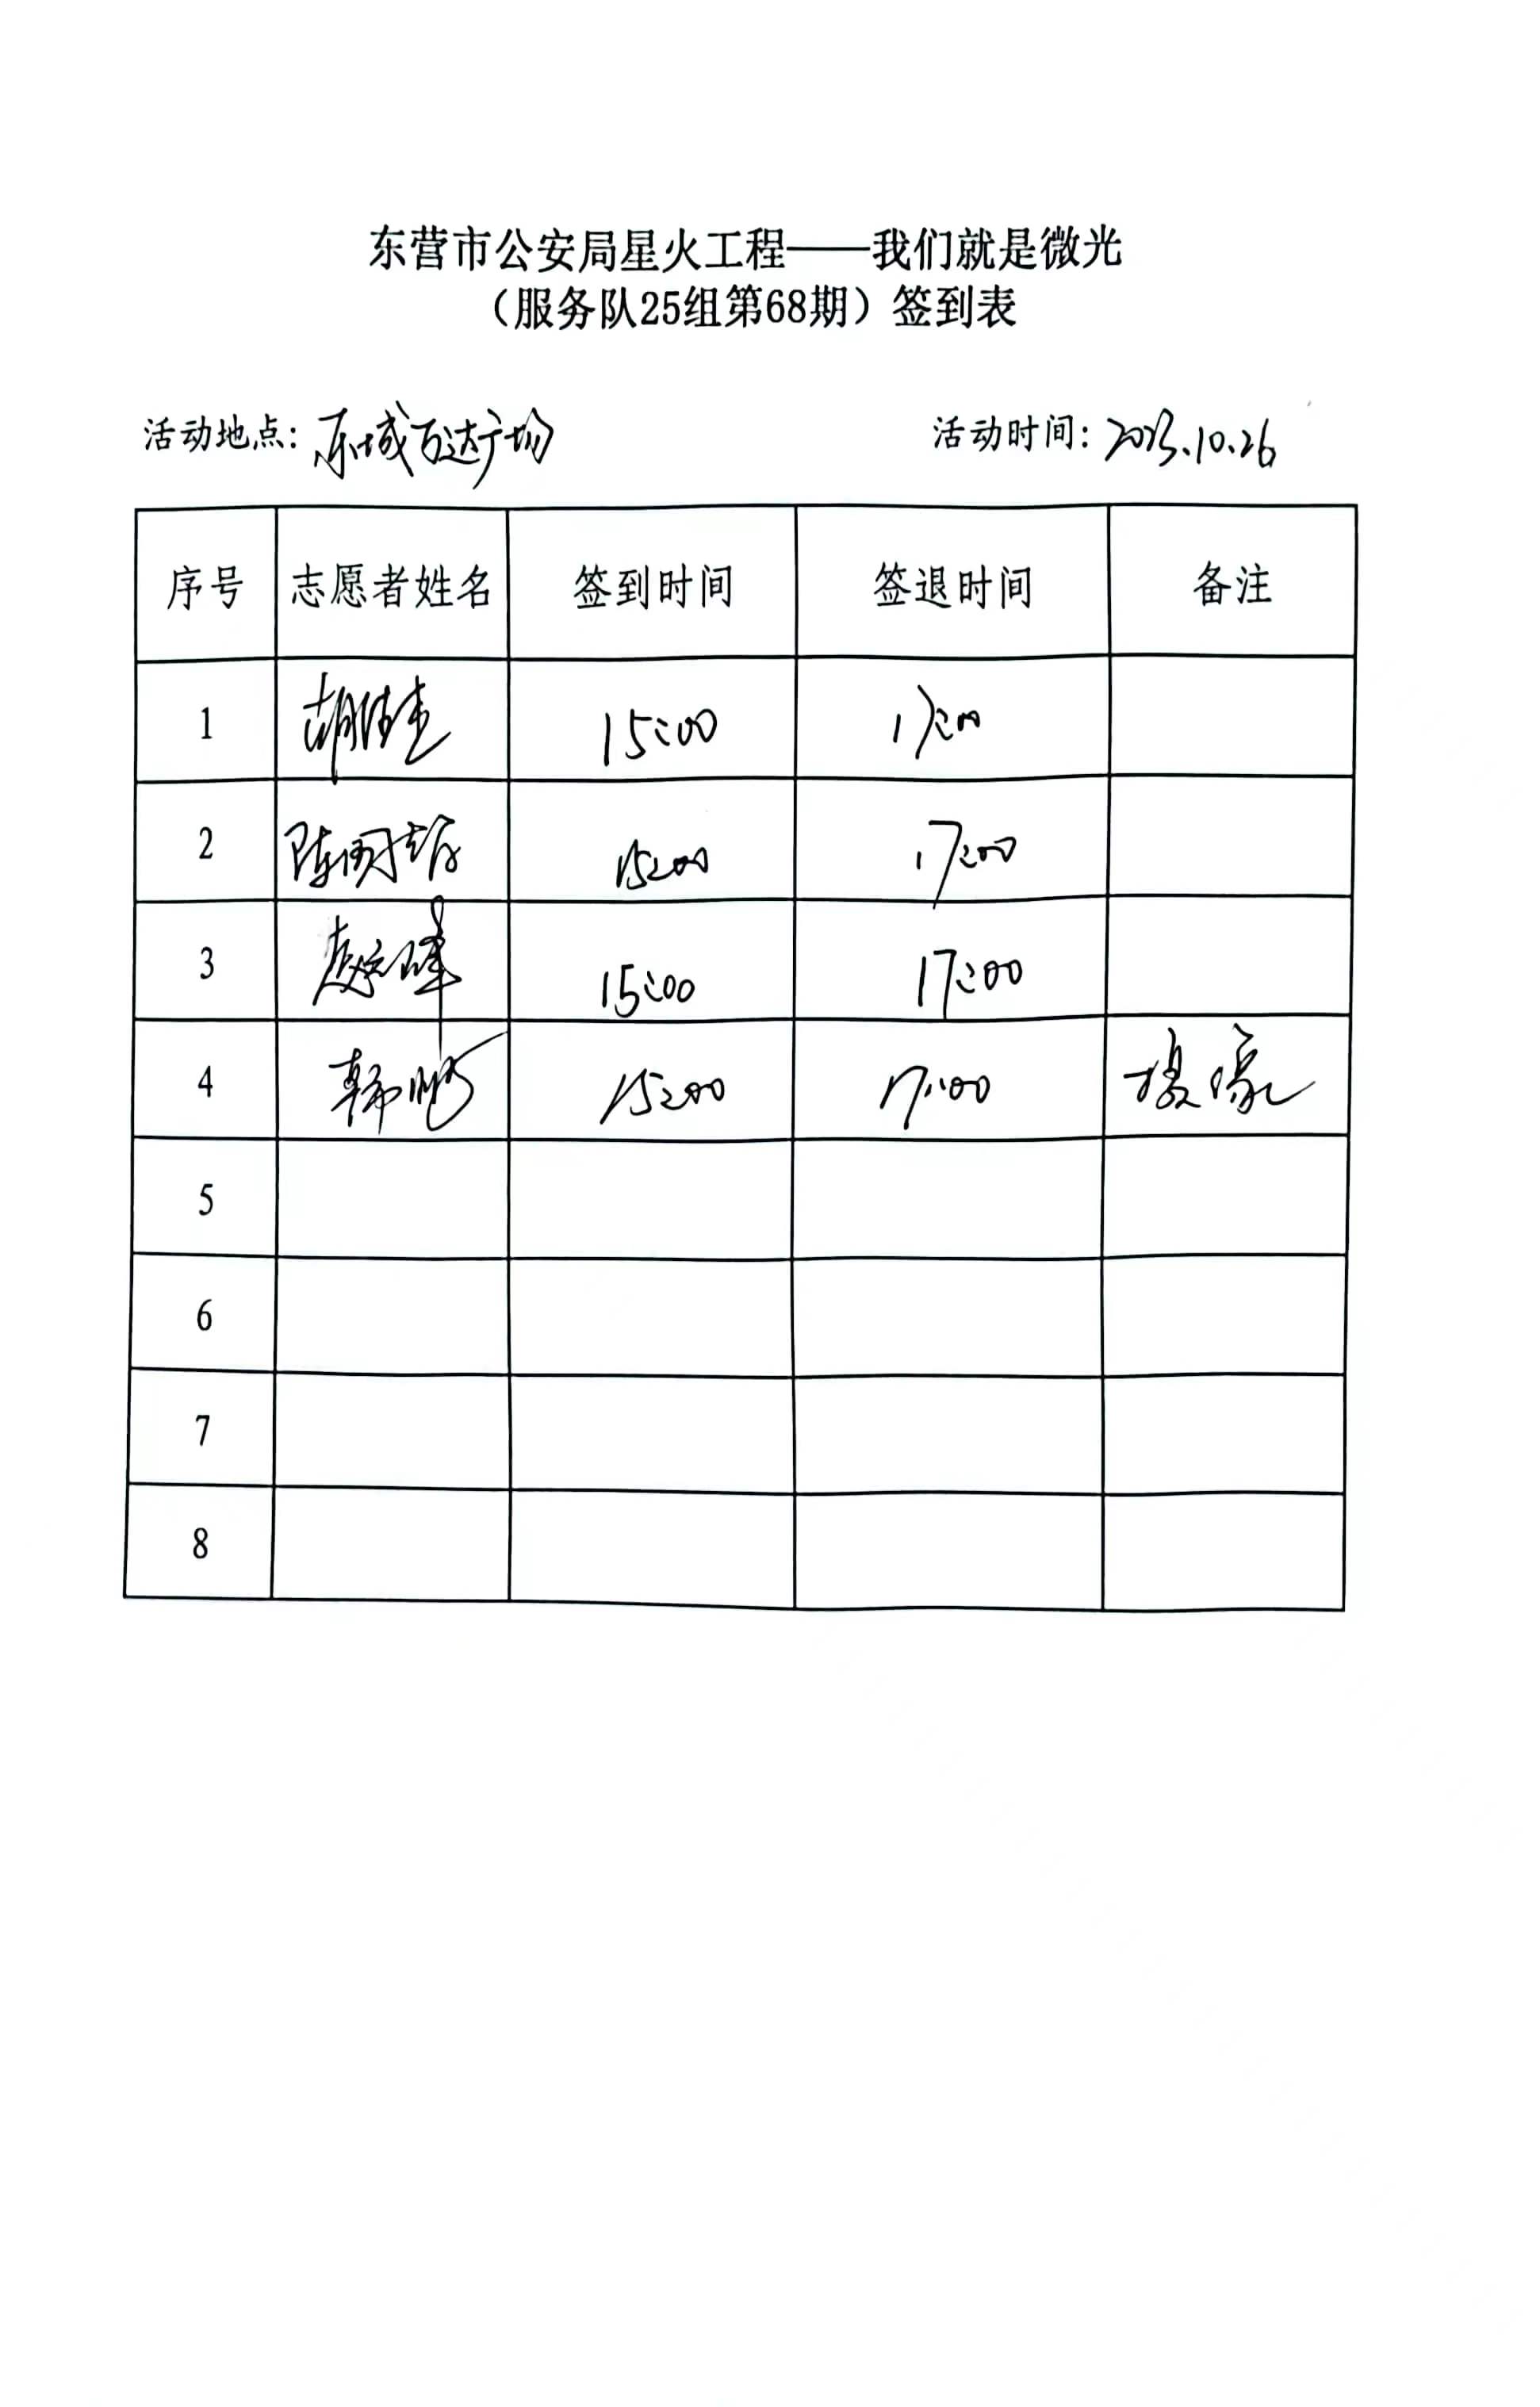 东营市公安局星火工程——我们就是微光
（服务队25组第68期）签到表
活动地点：东城万达广场 活动时间：2023.10.26
序号 志愿者姓名 签到时间 签退时间 备注
1 15:00 17:00
2 15:00 17:00
3 15:00 17:00
4 15:00 17:00 摄像
5
6
7
8